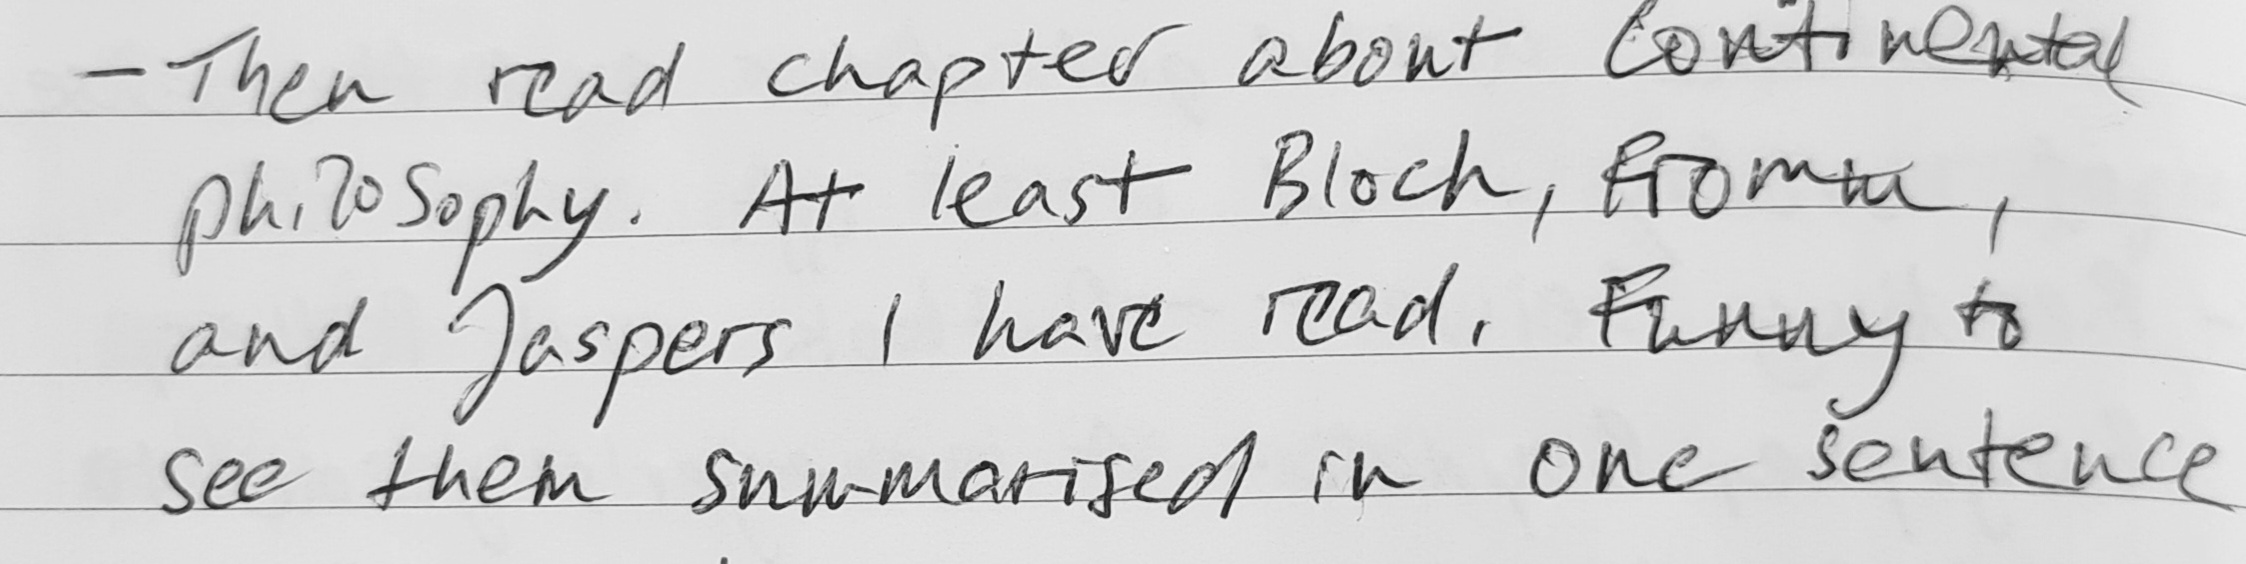 - Then read chapter about Continental
philosophy. At least Bloch, Fromm,
and Jaspers I have read. Funny to
see them summarised in one sentence